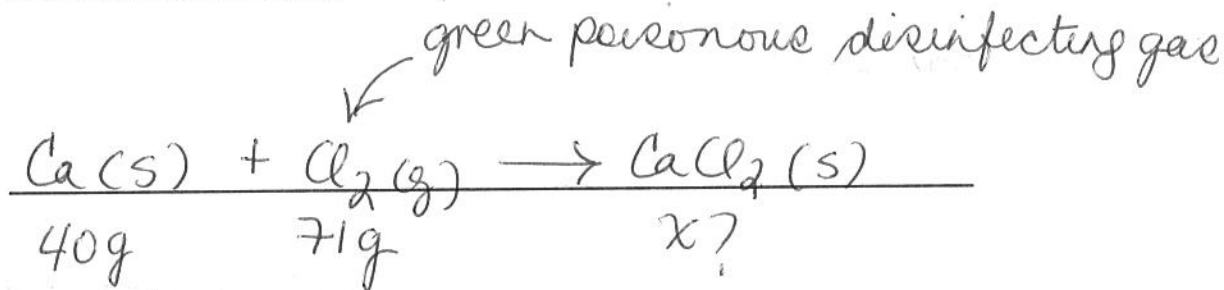 green poisonous disinfecting gas
Ca(s) + Cl₂(g) → CaCl₂(s)
40g 71g x?